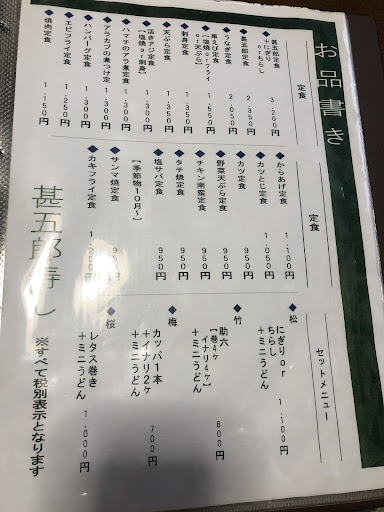 お品書き
定食
◆甚五郎定食
+にぎり
orちらし
3,200円
◆甚五郎定食
◆うなぎ定食
2,050円
◆車えび定食
【塩焼orフライ
or天ぷら】
◆刺身定食
1,350円
◆天ぷら定食
1,300円
◆活きアジ定食
【塩焼or刺身】
1,300円
◆ハマチのアラ煮定食
1,300円
◆アラカブの煮つけ定食
1,300円
◆ハンバーグ定食
1,300円
◆エビフライ定食
1,250円
◆焼肉定食
1,150円
定食
◆からあげ定食
1,100円
◆カツとじ定食
1,050円
◆カツ定食
950円
◆野菜天ぷら定食
950円
◆チキン南蛮定食
950円
◆タテ焼定食
950円
◆塩サバ定食
950円
【季節物10月~】
◆サンマ焼定食
◆カキフライ定食
1,250円
セットメニュー
◆松
にぎりor
ちらし
+ミニうどん
1,100円
◆竹
助六
【巻4ケ
イナリ4ケ】
+ミニうどん
800円
◆梅
カッパ1本
+イナリ2ケ
+ミニうどん
700円
◆桜
レタス巻き
+ミニうどん
1,000円
甚五郎寿し
※すべて税別表示となります